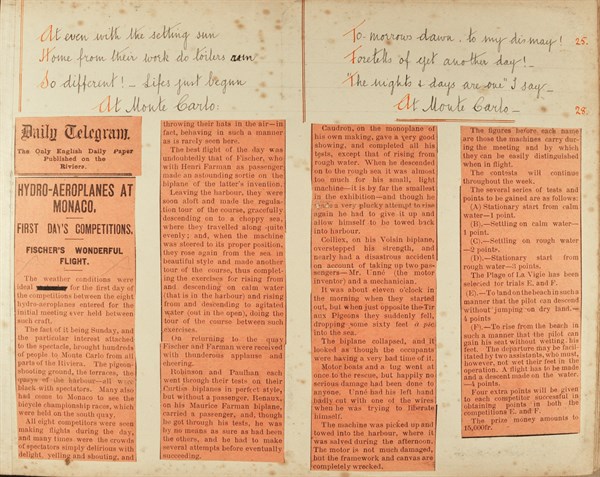 At even with the setting sun
Home from their work do toilers run
So different! – Lifes just begun
At Monte Carlo.
To-morrows dawn. to my dismay!
25.
Foretells of yet another day!
"The nights & days are one" I say –
At Monte Carlo –
28.
Daily Telegram.
The Only English Daily Paper
Published on the
Riviera.
HYDRO-AEROPLANES AT
MONACO.
FIRST DAY'S COMPETITIONS.
FISCHER'S WONDERFUL
FLIGHT.
The weather conditions were
ideal for the first day of
the competitions between the eight
hydro-aeroplanes entered for the
initial meeting ever held between
such craft.
The fact of it being Sunday, and
the particular interest attached
to the spectacle, brought hundreds
of people to Monte Carlo from all
parts of the Riviera. The pigeon-
shooting ground, the terraces, the
quays of the harbour—all was
black with spectators. Many also
had come to Monaco to see the
bicycle championship races, which
were held on the south quay.
All eight competitors were seen
making flights during the day,
and many times were the crowds
of spectators simply delirious with
delight, yelling and shouting, and
throwing their hats in the air—in
fact, behaving in such a manner
as is rarely seen here.
The best flight of the day was
undoubtedly that of Fischer, who
with Henri Farman as passenger
made an astounding sortie on the
biplane of the latter's invention.
Leaving the harbour, they were
soon aloft and made the regula-
tion tour of the course, gracefully
descending on to a choppy sea,
where they travelled along quite
evenly; and, when the machine
was steered to its proper position,
they rose again from the sea in
beautiful style and made another
tour of the course, thus complet-
ing the exercises for rising from
and descending on calm water
(that is in the harbour) and rising
from and descending to agitated
water (out in the open), doing the
tour of the course between such
exercises.
On returning to the quay
Fischer and Farman were received
with thunderous applause and
cheering.
Robinson and Paulhan each
went through their tests on their
Curtiss biplanes in perfect style,
but without a passenger. Renaux,
on his Maurice Farman biplane,
carried a passenger, and, though
he got through his tests, he was
by no means as sure as had been
the others, and he had to make
several attempts before eventually
succeeding.
Caudron, on the monoplane of
his own making, gave a very good
showing, and completed all his
tests, except that of rising from
rough water. When he descended
on to the rough sea it was almost
too much for his small, light
machine—it is by far the smallest
in the exhibition—and though he
a very plucky attempt to rise
again he had to give it up and
allow himself to be towed back
into harbour.
Colliex, on his Voisin biplane,
overstepped his strength, and
nearly had a disastrous accident
on account of taking up two pas-
sengers—Mr. Unné (the motor
inventor) and a mechanician.
It was about eleven o'clock in
the morning when they started
out, but when just opposite the Tir
aux Pigeons they suddenly fell,
dropping some sixty feet à pic
into the sea.
The biplane collapsed, and it
looked as though the occupants
were having a very bad time of it.
Motor boats and a tug went at
once to the rescue, but happily no
serious damage had been done to
anyone. Unné had his left hand
badly cut with one of the wires
when he was trying to liberate
himself.
The machine was picked up and
towed into the harbour, where it
was salved during the afternoon.
The motor is not much damaged,
but the framework and canvas are
completely wrecked.
The figures before each name
are those the machines carry
during the meeting and by which
they can be easily distinguished
when in flight.
The contests will continue
throughout the week.
The several series of tests and
points to be gained are as follows:
(A) Stationary start from calm
water—1 point.
(B).—Settling on calm water—
1 point.
(C).—Settling on rough water
—2 points.
(D).—Stationary start from
rough water—3 points.
The Plage of La Vigie has been
selected for trials E. and F.
(E).—To land on the beach in such a
manner that the pilot can descend
without jumping on dry land.—
4 points
(F).—To rise from the beach in
such a manner that the pilot can
gain his seat without wetting, his
feet. The departure may be facil-
itated by two assistants, who must,
however, not wet their feet in the
operation. A flight has to be made
and a descent made on the water.
—4 points.
Four extra points will be given
to each competitor successful in
obtaining points in both the
competitions E. and F.
The prize money amounts to
15,000fr.